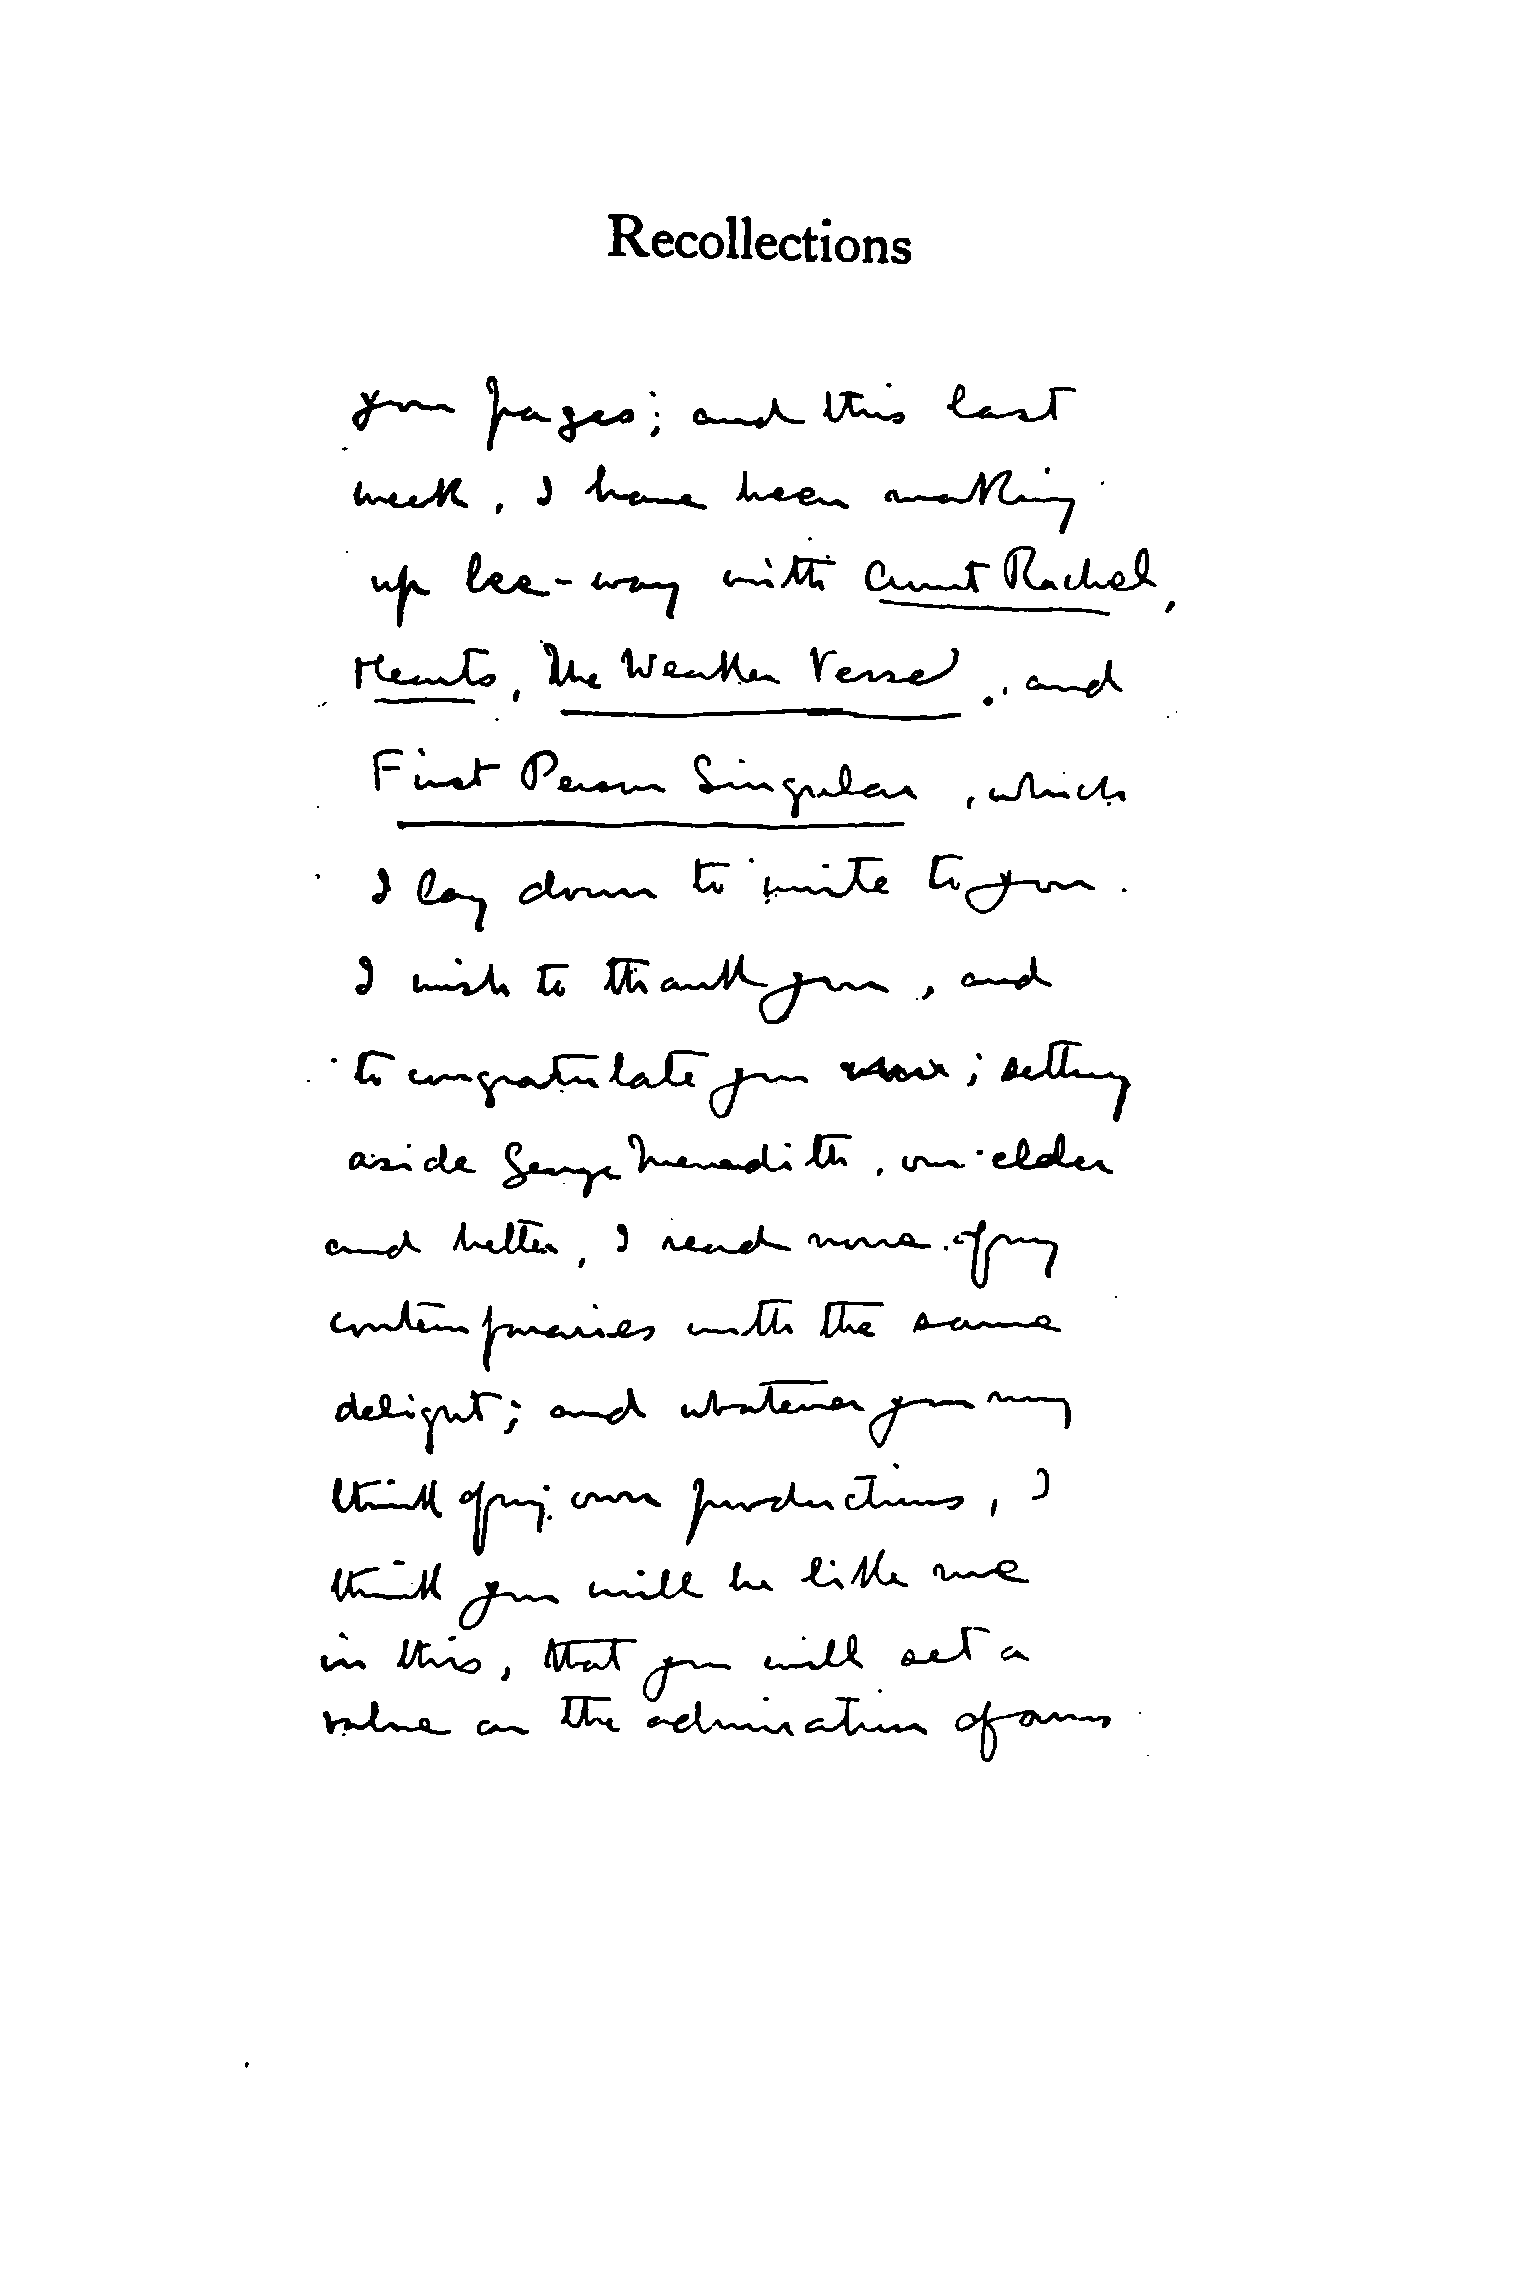 Recollections
your pages; and this last
week, I have been making
up lee-way with Aunt Rachel,
Hearts, The Weaker Vessel, and
First Person Singular, which
I lay down to write to you.
I wish to thank you, and
to congratulate you; setting
aside George Meredith, our elder
and better, I read none of my
contemporaries with the same
delight; and whatever you may
think of my own productions, I
think you will be like me
in this, that you will set a
value on the admiration of